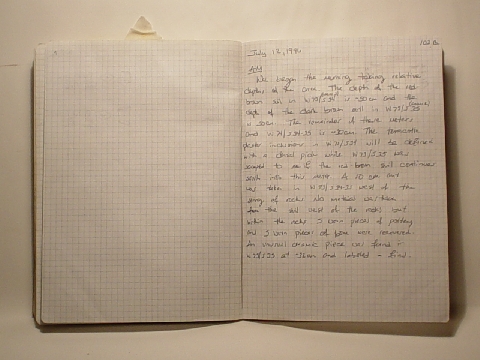 July 12, 1996
102
We began the morning taking relative
depths of the area. The depth of the red
brown soil in W73/S34 is -30cm and the
depth of the dark brown soil in W73/S35
is -30cm. The remainder of these meters
and W74/S34-35 is -30cm. The
plaster inclusions in W74/S34 will be defined
with a dental pick while W73/S35 was
scraped to see if the red brown soil continues
south into this meter. A 20 cm cut
was taken in W73/S34-35 west of the
string of rocks. No material was taken
from the soil west of the rocks but
within the rocks 3 worn pieces of pottery
and 2 worn pieces of bone were recovered.
An unusual ceramic piece was found in
W73/S35 at -36cm and labelled - find.